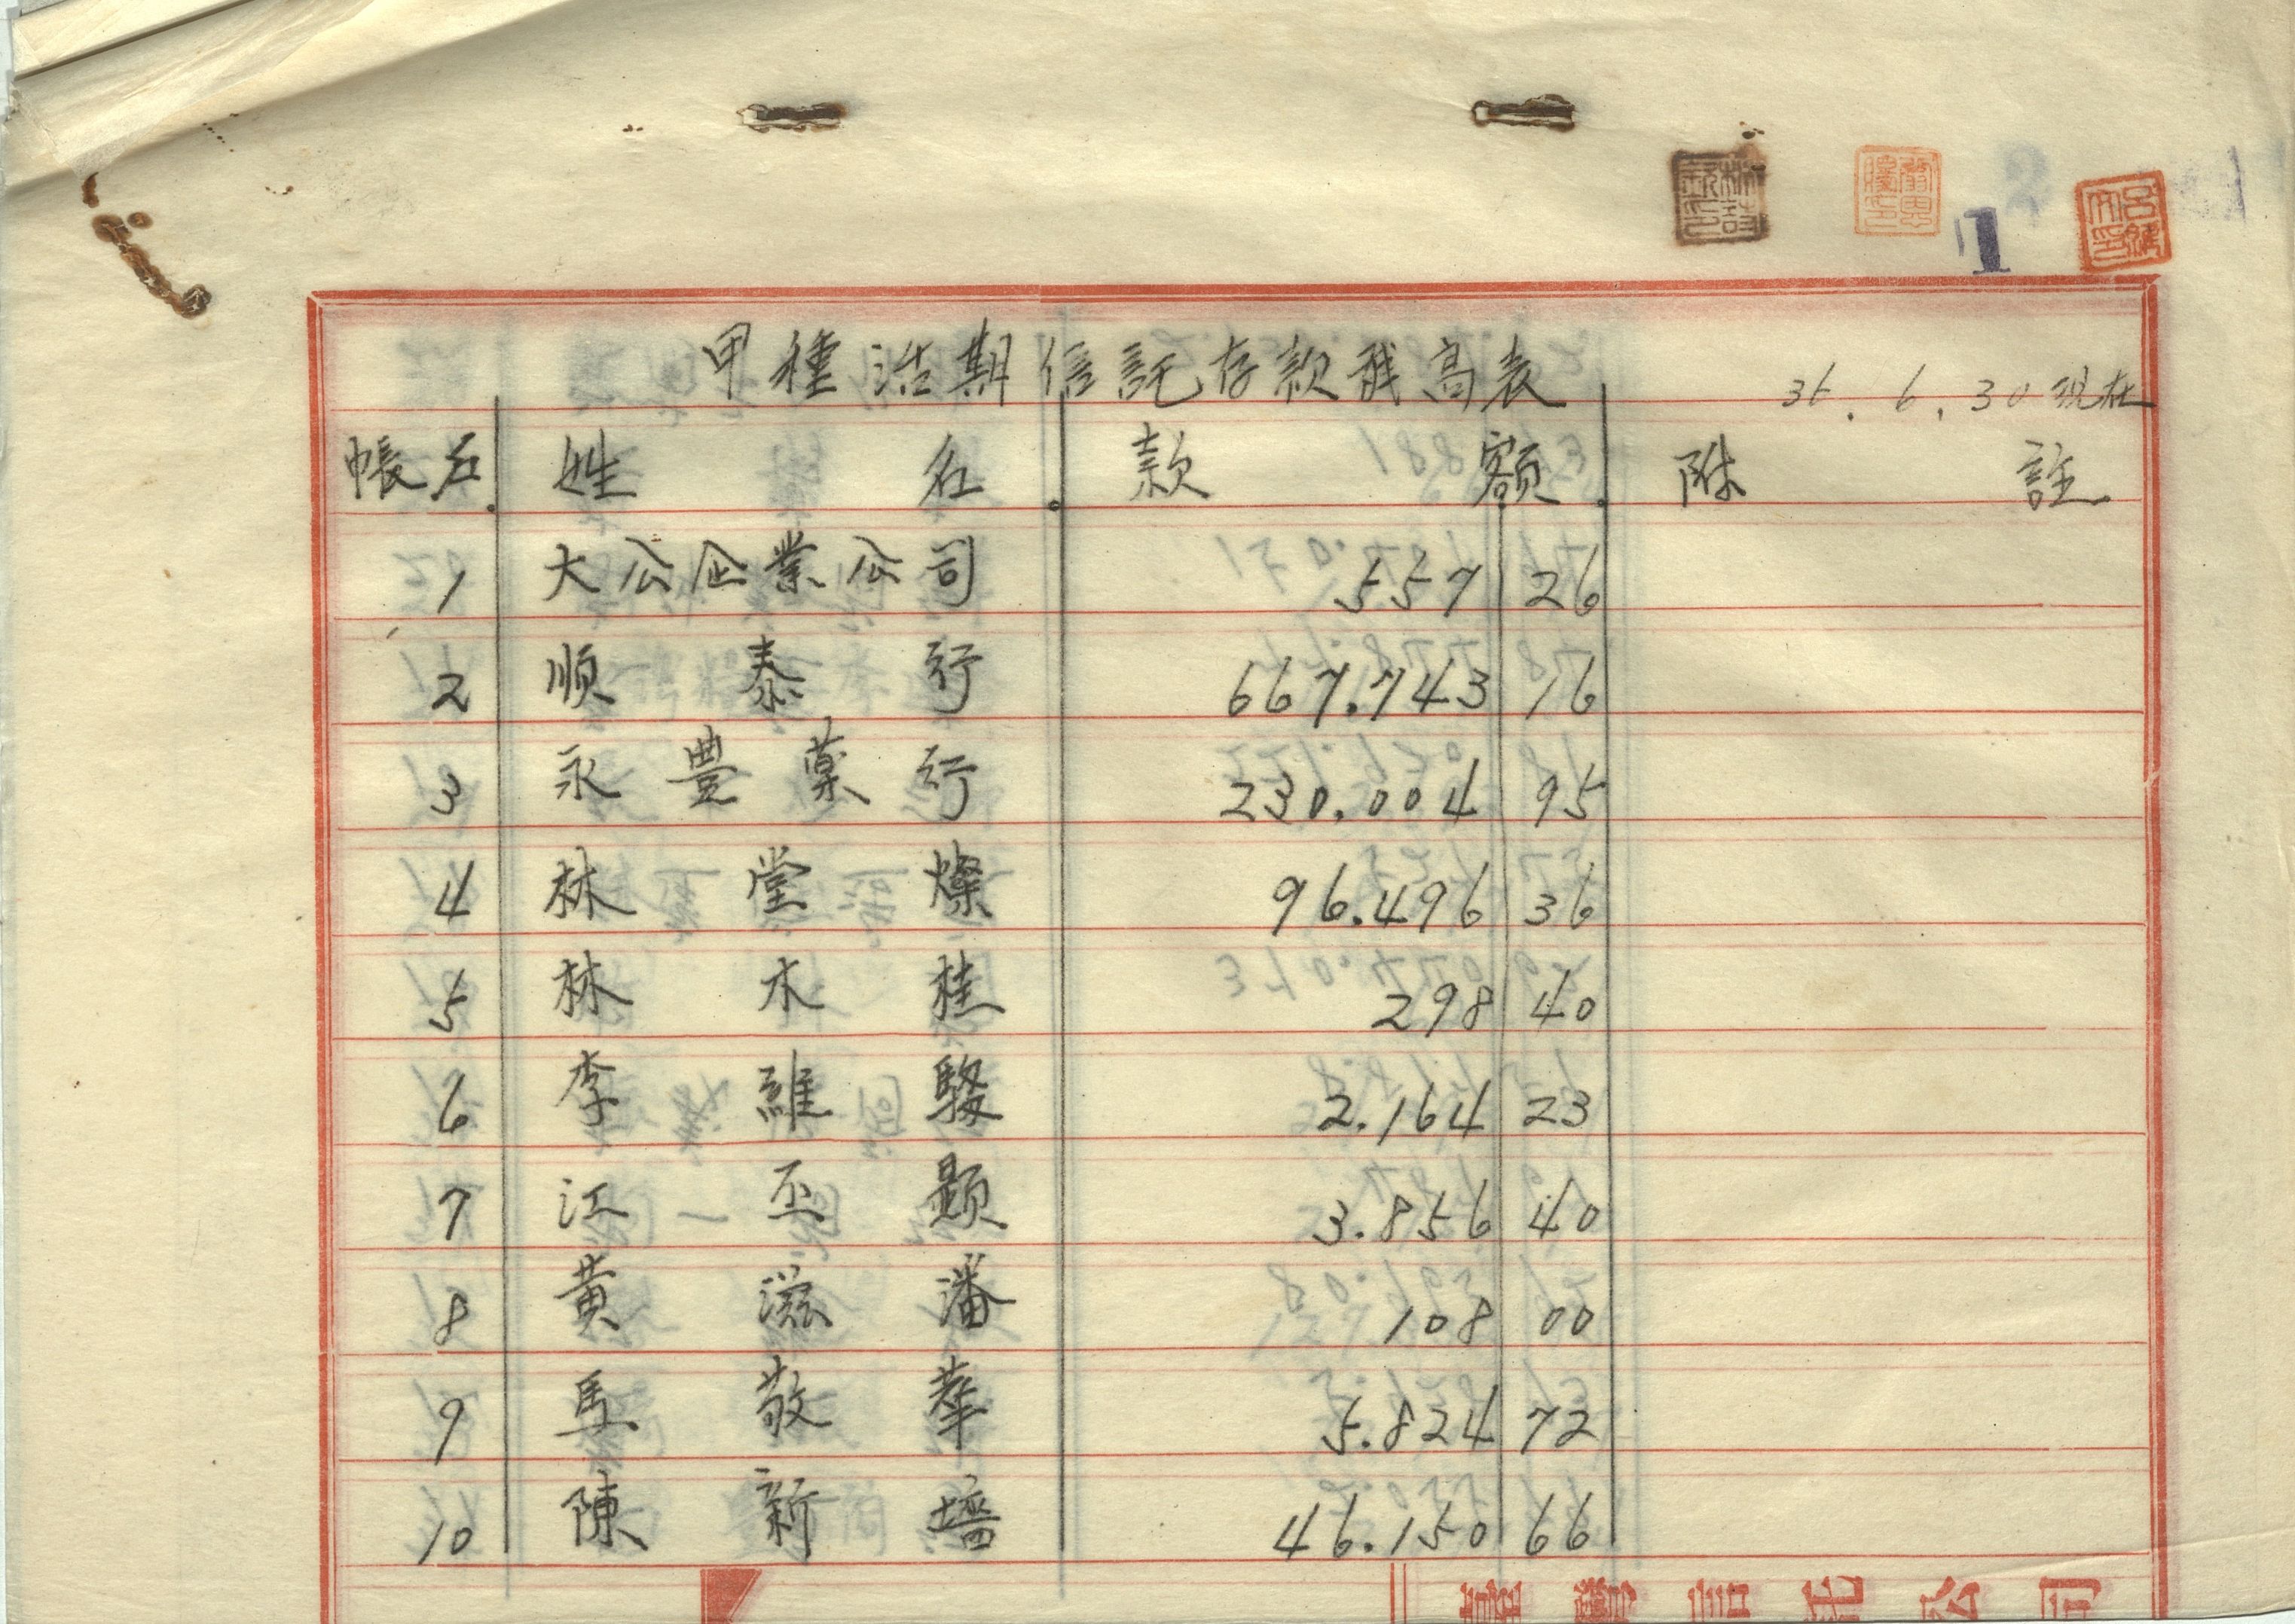 1
甲種活期信託存款殘高表
36.6.30現在
帳戶 姓名 款額 附註
1 大公企業公司 557 26
2 順泰行 667.743 16
3 永豊藥行 230.004 95
4 林堂燦 96.496 36
5 林木桂 298 40
6 李維駿 2.164 23
7 江丕顕 3.856 40
8 黃滋潘 108 00
9 馬敬華 5.824 72
10 陳新 46.150 66
臺灣信託公司